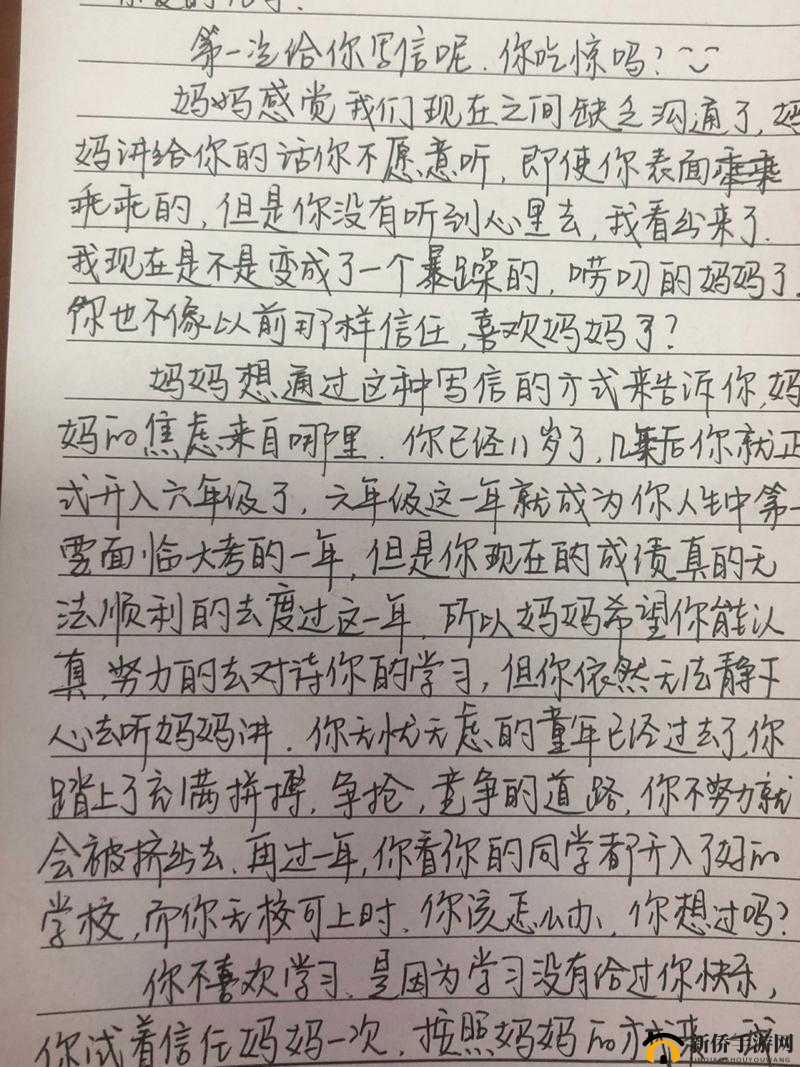 第一次给你写信呢.你吃惊吗?
妈妈感觉我们现在之间缺乏沟通了,妈
妈讲给你的话你不愿意听,即使你表面
乖乖的,但是你没有听到心里去,我看出来了.
我现在是不是变成了一个暴躁的,唠叨的妈妈了,
你也不像以前那样信任,喜欢妈妈了?
妈妈想通过这种写信的方式来告诉你,妈
妈的焦虑来自哪里.你已经11岁了,几年后你就正
式开入六年级了,六年级这一年就成为你人生中第一
要面临大考的一年,但是你现在的成绩真的无
法顺利的去度过这一年.所以妈妈希望你能认
真,努力的去对待你的学习,但你依然无法静下
心去听妈妈讲.你无忧无虑的童年已经过去了,你
踏上了充满拼搏,争抢,竞争的道路,你不努力就
会被挤出去.再过一年,你看你的同学都开入了好的
学校,而你无校可上时.你该怎么办.你想过吗?
你不喜欢学习.是因为学习没有给过你快乐,
你试着信任妈妈一次.按照妈妈的方式来一
新侨手游网
XINQIAOSHOUYOUWANG